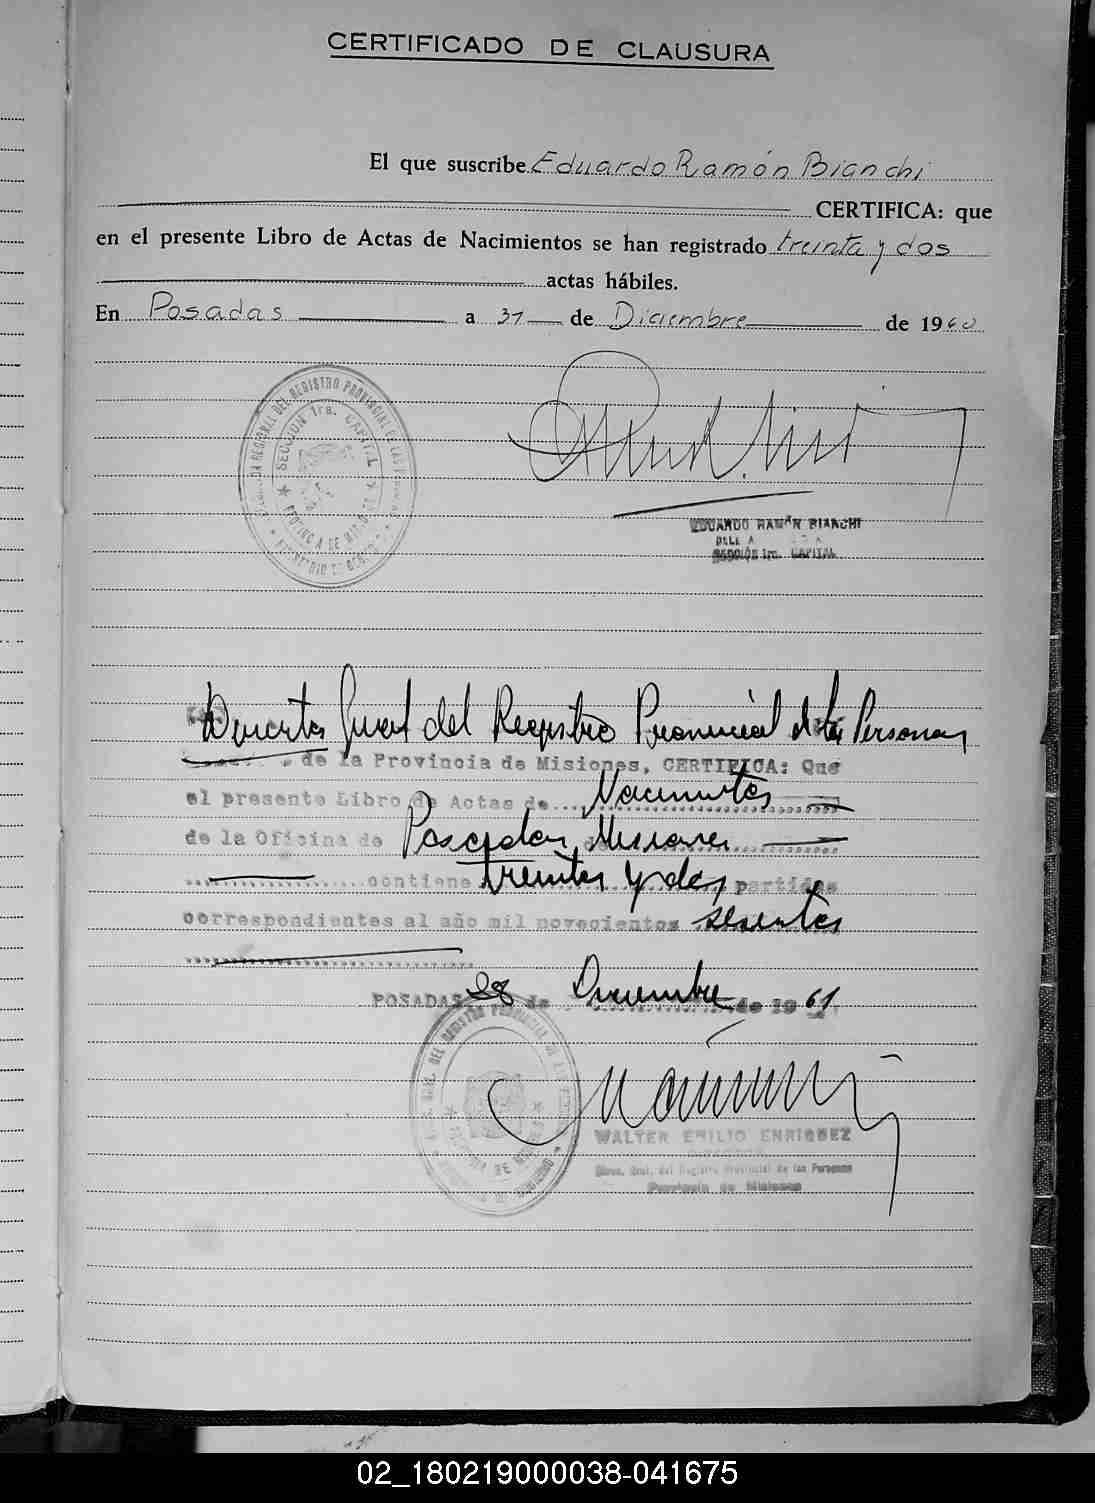 CERTIFICADO DE CLAUSURA
El que suscribe Eduardo Ramón Bianchi
CERTIFICA: que
en el presente Libro de Actas de Nacimientos se han registrado treinta y dos
actas hábiles.
En Posadas a 31 de Diciembre de 1960
SECCION 1ra. CAPITAL
EDUARDO RAMÓN BIANCHI
SECCIÓN 1ra. CAPITAL
General del Registro Provincial de las Personas
de la Provincia de Misiones, CERTIFICA: Que
el presente Libro de Actas de Nacimientos
de la Oficina de Posadas, Misiones
contiene treinta y dos partidas
correspondientes al año mil novecientos sesenta
POSADAS 28 de Diciembre de 1961
WALTER EMILIO ENRIQUEZ
Direc. Gral. del Registro Provincial de las Personas
Provincia de Misiones
02_180219000038-041675